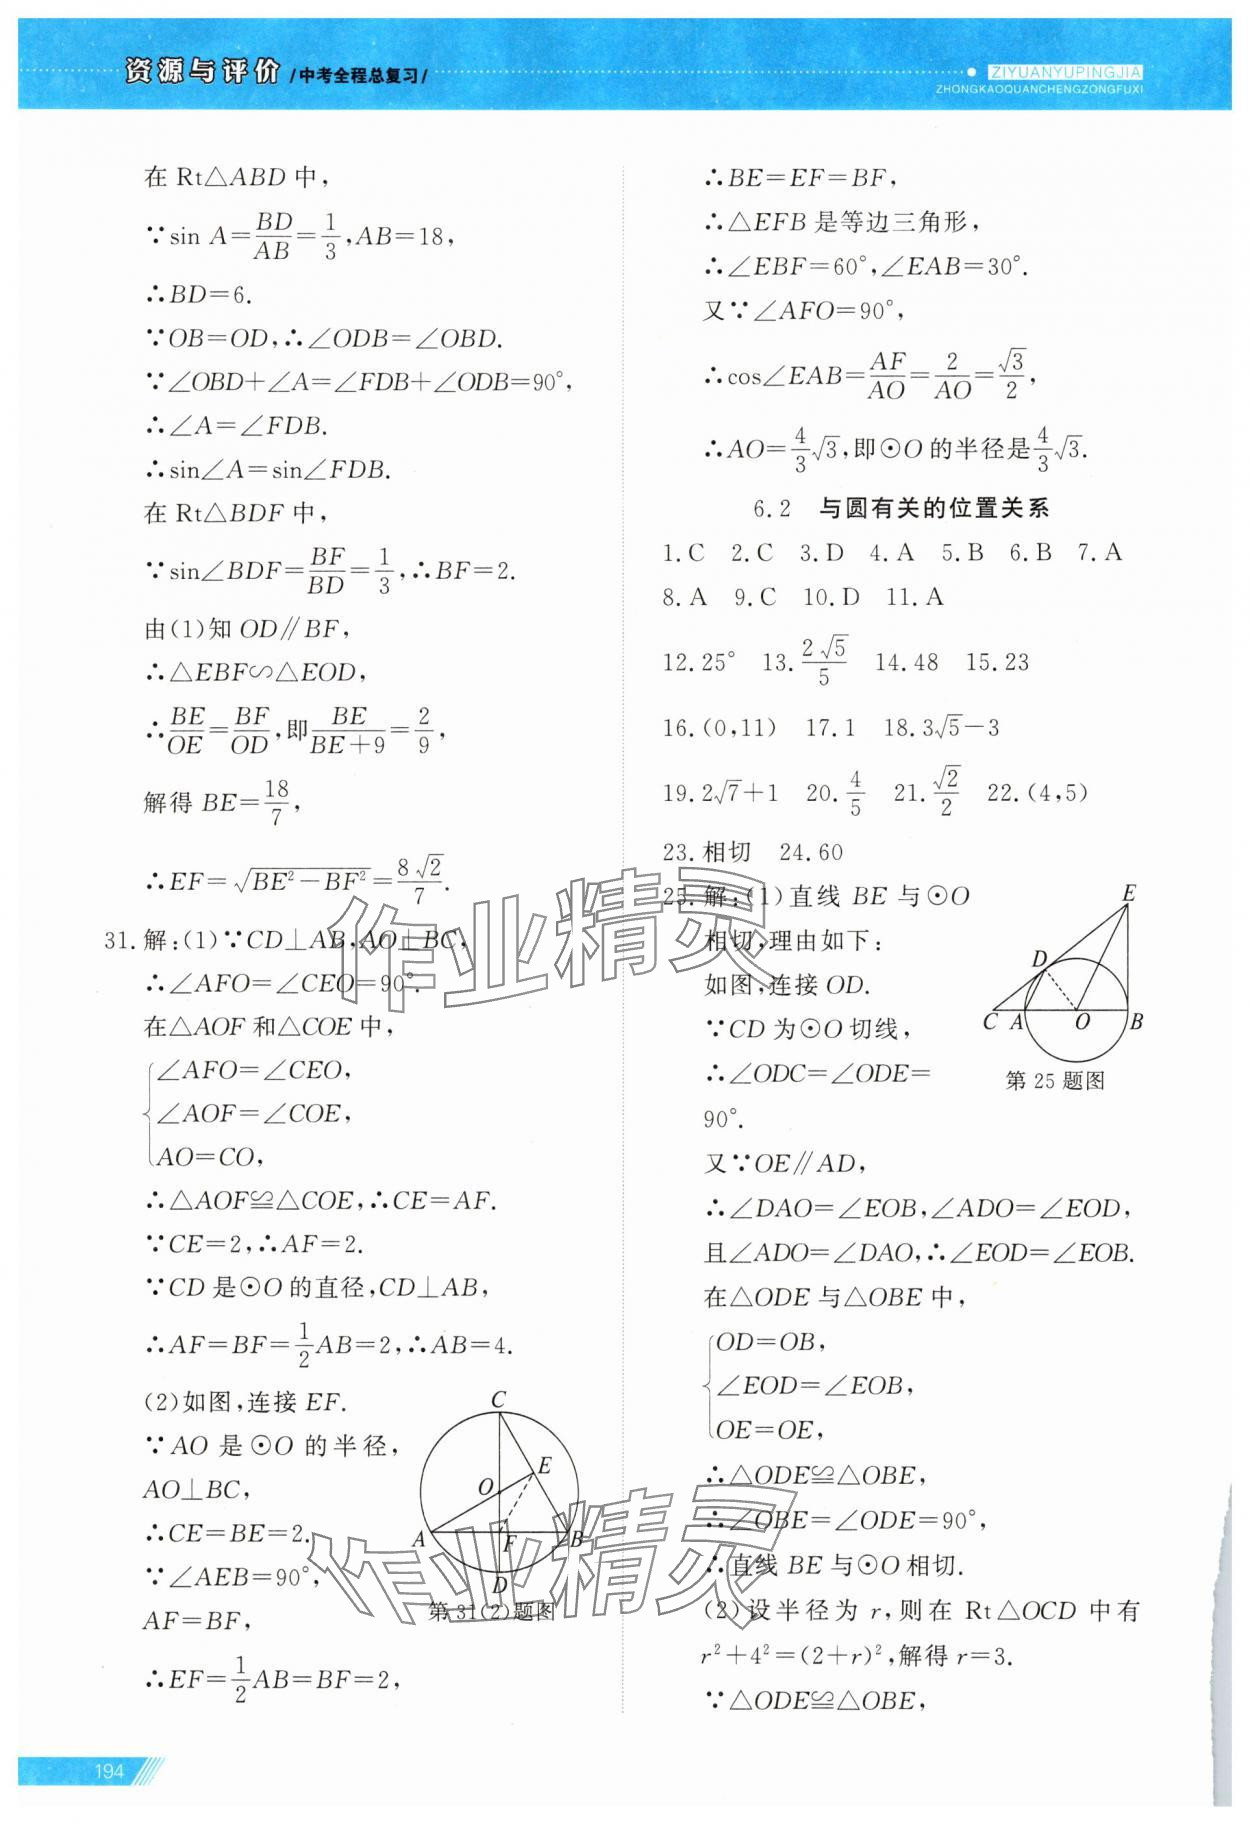 资源与评价/中考全程总复习/
ZIYUANYUPINGJIA
ZHONGKAOQUANCHENGZONGFUXI
在 Rt△ABD 中,
∵sin A=BD/AB=1/3,AB=18,
∴BD=6.
∵OB=OD,∴∠ODB=∠OBD.
∵∠OBD+∠A=∠FDB+∠ODB=90°,
∴∠A=∠FDB.
∴sin∠A=sin∠FDB.
在 Rt△BDF 中,
∵sin∠BDF=BF/BD=1/3,∴BF=2.
由(1)知 OD∥BF,
∴△EBF∽△EOD,
∴BE/OE=BF/OD,即BE/(BE+9)=2/9,
解得 BE=18/7,
∴EF=√(BE²-BF²)=8√2/7.
31.解:(1)∵CD⊥AB,AO⊥BC,
∴∠AFO=∠CEO=90°.
在△AOF 和△COE 中,
∠AFO=∠CEO,
∠AOF=∠COE,
AO=CO,
∴△AOF≌△COE,∴CE=AF.
∵CE=2,∴AF=2.
∵CD 是⊙O 的直径,CD⊥AB,
∴AF=BF=1/2AB=2,∴AB=4.
(2)如图,连接 EF.
∵AO 是⊙O 的半径,
AO⊥BC,
∴CE=BE=2.
∵∠AEB=90°,
AF=BF,
∴EF=1/2AB=BF=2,
C
E
O
A
F
B
D
第31(2)题图
∴BE=EF=BF,
∴△EFB 是等边三角形,
∴∠EBF=60°,∠EAB=30°.
又∵∠AFO=90°,
∴cos∠EAB=AF/AO=2/AO=√3/2,
∴AO=4/3√3,即⊙O 的半径是4/3√3.
6.2 与圆有关的位置关系
1.C 2.C 3.D 4.A 5.B 6.B 7.A
8.A 9.C 10.D 11.A
12.25° 13.2√5/5 14.48 15.23
16.(0,11) 17.1 18.3√5-3
19.2√7+1 20.4/5 21.√2/2 22.(4,5)
23.相切 24.60
25.解:(1)直线 BE 与⊙O
相切,理由如下:
如图,连接 OD.
∵CD 为⊙O 切线,
∴∠ODC=∠ODE=
90°.
E
D
C A O B
第 25 题图
又∵OE∥AD,
∴∠DAO=∠EOB,∠ADO=∠EOD,
且∠ADO=∠DAO,∴∠EOD=∠EOB.
在△ODE 与△OBE 中,
OD=OB,
∠EOD=∠EOB,
OE=OE,
∴△ODE≌△OBE,
∴∠OBE=∠ODE=90°,
∴直线 BE 与⊙O 相切.
(2)设半径为 r,则在 Rt△OCD 中有
r²+4²=(2+r)²,解得 r=3.
∵△ODE≌△OBE,
作业精灵
作业精灵
194